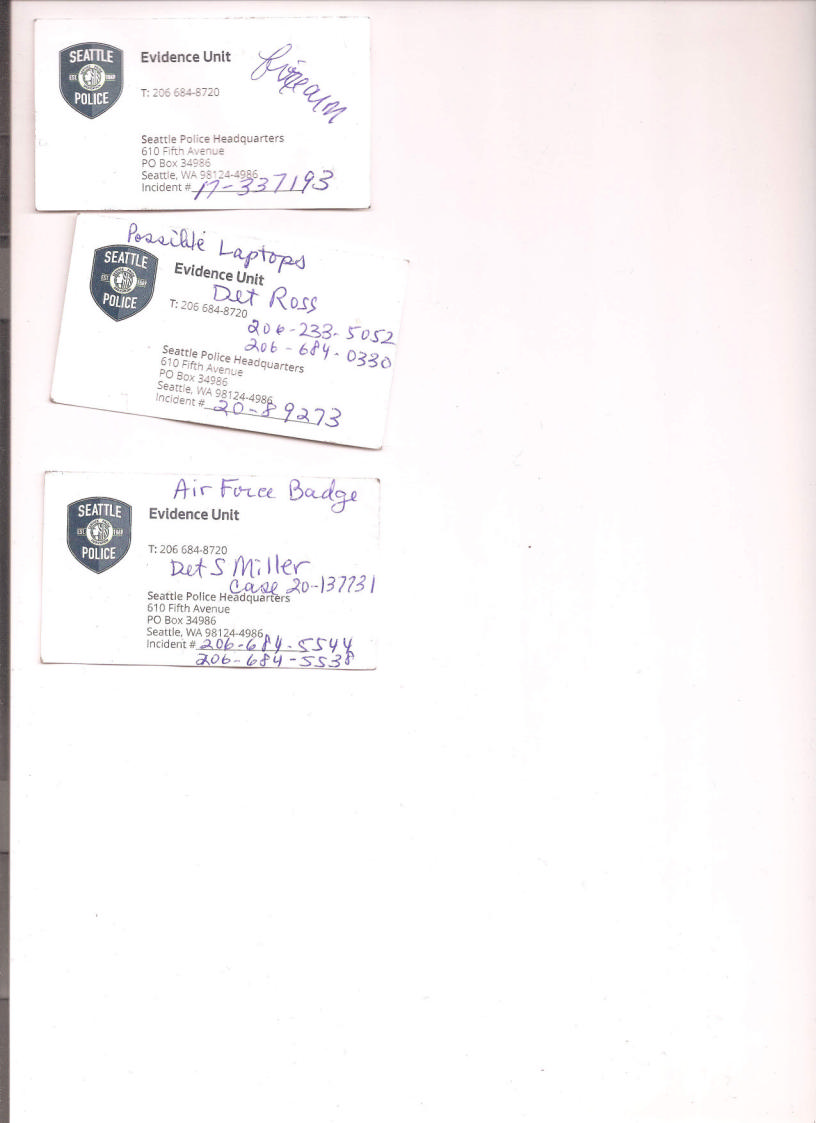 SEATTLE
EST. 1869
POLICE
Evidence Unit
firearm
T: 206 684-8720
Seattle Police Headquarters
610 Fifth Avenue
PO Box 34986
Seattle, WA 98124-4986
Incident # 17-337193
Possible Laptops
SEATTLE
EST. 1869
POLICE
Evidence Unit
Det Ross
T: 206 684-8720
206-233-5052
206-684-0330
Seattle Police Headquarters
610 Fifth Avenue
PO Box 34986
Seattle, WA 98124-4986
Incident # 20-89273
Air Force Badge
SEATTLE
EST. 1869
POLICE
Evidence Unit
T: 206 684-8720
Det S Miller
Case 20-137731
Seattle Police Headquarters
610 Fifth Avenue
PO Box 34986
Seattle, WA 98124-4986
Incident # 206-684-5544
206-684-5538